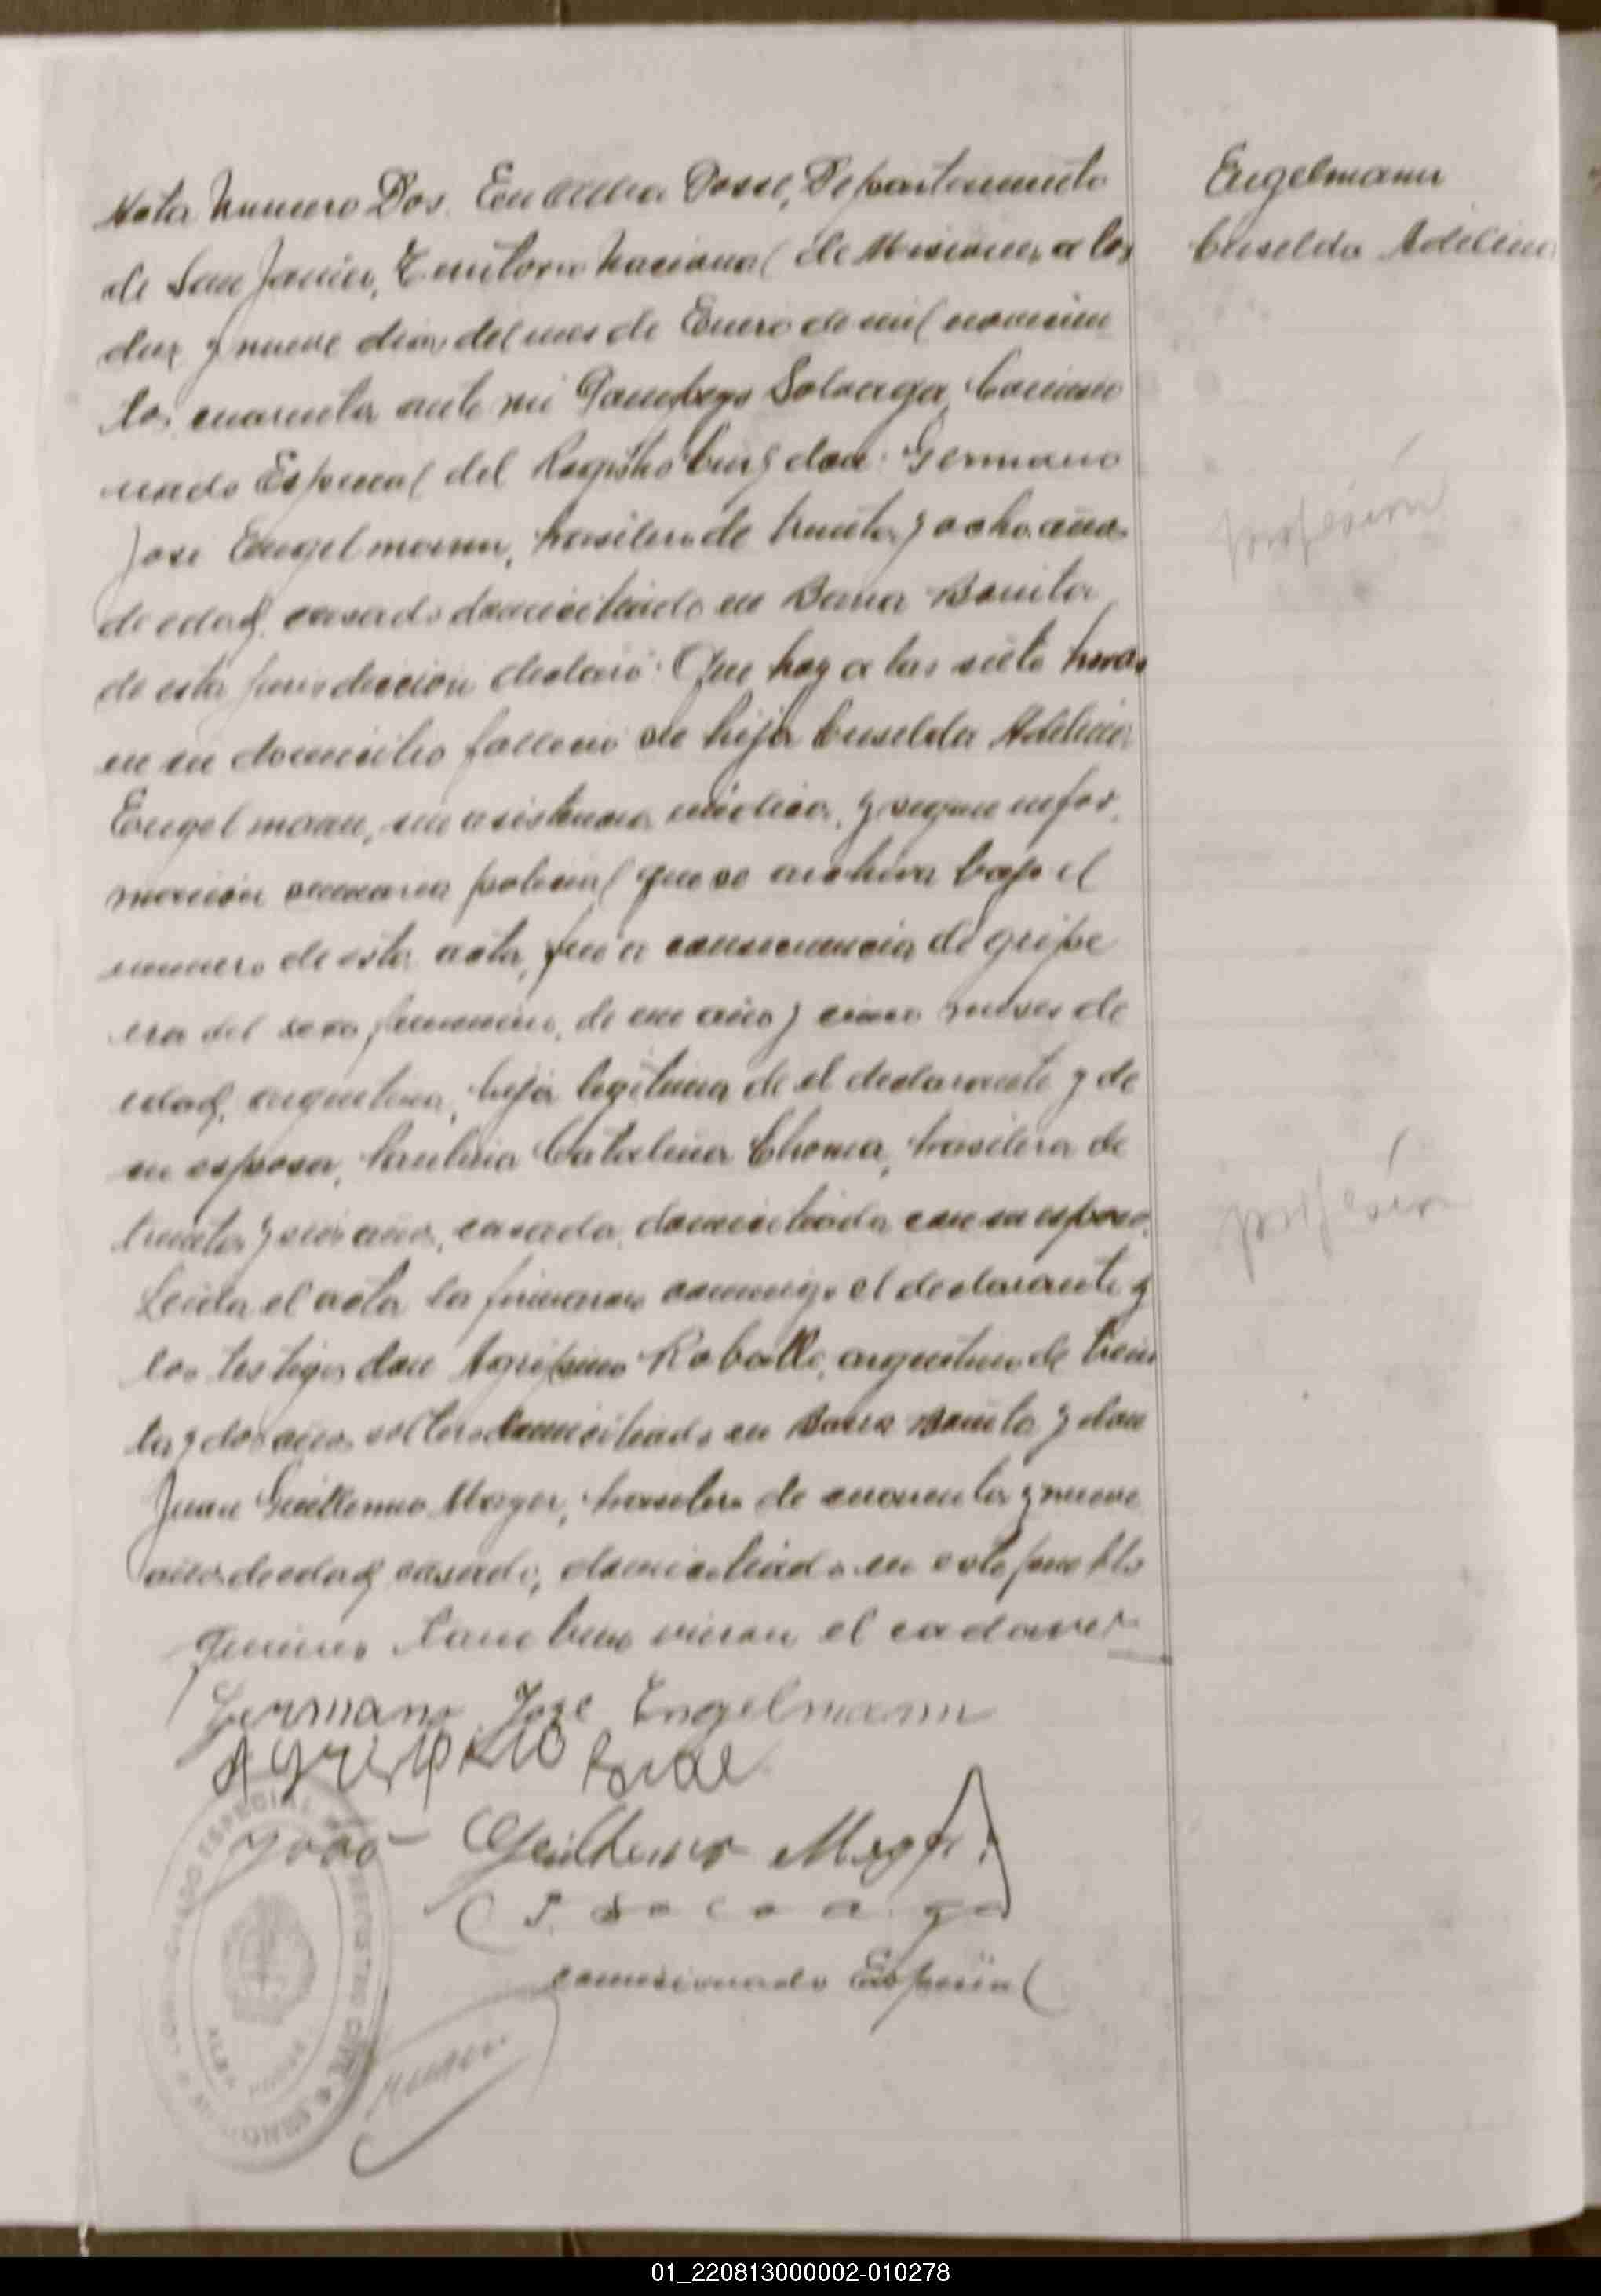 Acta Numero Dos. En Alba Posse, Departamento
de San Javier, Territorio Nacional de Misiones, a los
diez y nueve dias del mes de Enero de mil novecien
tos cuarenta ante mi Soloaga, Comisio
nado Especial del Registro Civil, don: Germano
José Engelmann, brasilero de treinta y ocho años
de edad, casado domiciliado en Barra Bonita
de esta jurisdiccion declaró: Que hoy a las siete horas
en su domicilio fallecio su hija Criselda Adelina
Engelmann, sin asistencia médica, y segun infor
macion sumaria policial que se archiva bajo el
numero de esta acta, fué a consecuencia de gripe
era del sexo femenino, de un año y cinco meses de
edad, argentina, hija legitima de el declarante y de
su esposa, Paulina Catalina Thoma, brasilera de
treinta y seis años, casada, domiciliada con su esposo.
Leida el acta la firmaron conmigo el declarante y
los testigos don Agripino Roballo, argentino de trein
ta y dos años soltero domiciliado en Barra Bonita y don
Juan Guillermo Mayer, brasilero de cuarenta y nueve
años de edad, casado, domiciliado en este pueblo
quienes tambien vieron el cadaver
Germano José Engelmann
Agripino
João Guilherme Mayer
P. Soloaga
comisionado Especial
Engelmann
Criselda Adelina
profesión
profesión
COMISIONADO ESPECIAL REGISTRO CIVIL
ALBA POSSE
MISIONES
01_220813000002-010278